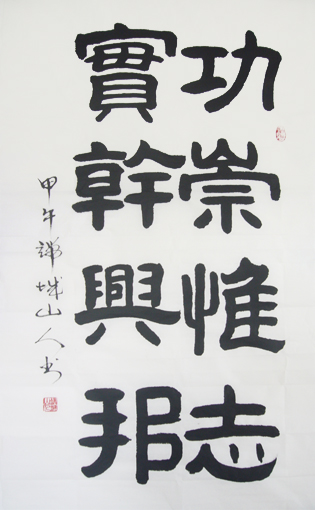 功崇惟志
實幹興邦
甲午
城山人书